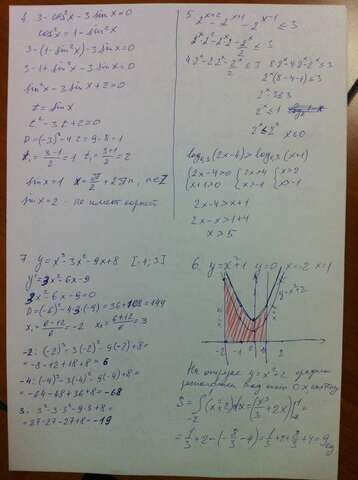 4. 3 - cos²x - 3 sin x = 0
cos²x = 1 - sin²x
3 - (1 - sin²x) - 3 sin x = 0
3 - 1 + sin²x - 3 sin x = 0
sin²x - 3 sin x + 2 = 0
t = sin x
t² - 3t + 2 = 0
D = (-3)² - 4·2 = 9 - 8 = 1
t₁ = (3-1)/2 = 1 t₂ = (3+1)/2 = 2
sin x = 1 x = π/2 + 2πn, n∈Z
sin x = 2 - не имеет корней
5. 2ˣ⁺² - 2ˣ⁺¹ - 2ˣ⁻¹ ≤ 3
2ˣ·2² - 2ˣ·2 - 2ˣ/2 ≤ 3
4·2ˣ - 2·2ˣ - 2ˣ/2 ≤ 3 8·2ˣ - 4·2ˣ - 2ˣ ≤ 3
2ˣ(8-4-1) ≤ 3
2ˣ·3 ≤ 3
2ˣ ≤ 1
2ˣ ≤ 2⁰
x ≤ 0
log₀,₃(2x-4) > log₀,₃(x+1)
{2x-4>0 {2x>4 {x>2
{x+1>0 {x>-1 {x>-1
2x-4 > x+1
2x-x > 1+4
x > 5
7. y = x³ - 3x² - 9x + 8 [-4; 3]
y' = 3x² - 6x - 9
3x² - 6x - 9 = 0
D = (-6²) - 4·3(-9) = 36 + 108 = 144
x₁ = (6-12)/6 = -2 x₂ = (6+12)/6 = 3
-2: (-2)³ - 3(-2)² - 9(-2) + 8 =
= -8 - 12 + 18 + 8 = 6
-4: (-4)³ - 3(-4)² - 9(-4) + 8 =
= -64 - 48 + 36 + 8 = -68
3: 3³ - 3·3² - 9·3 + 8 =
= 27 - 27 - 27 + 8 = -19
6. y = x² + 1 y = 0 x = -2 x = 1
y = x² + 2
-2 -1 0 1 2
На отрезке y = x² + 2 график
расположен над осью OX поэтому
S = ∫₋₂¹ (x² + 2)dx = (x³/3 + 2x)|₋₂¹ =
= 1/3 + 2 - (-8/3 - 4) = 1/3 + 2 + 8/3 + 4 = 9
ед